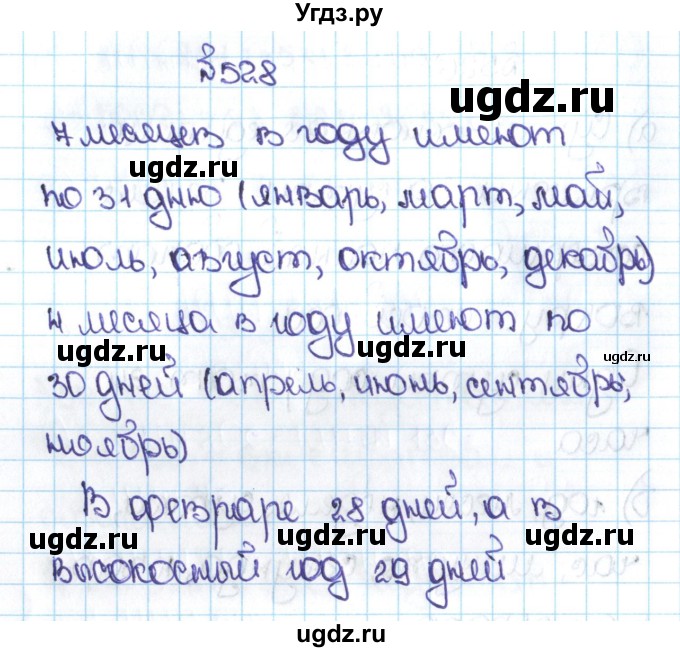 Угдз.ру
№528
ugdz.ru
7 месяцев в году имеют
ugdz.ru
ugdz.ru
по 31 дню (январь, март, май,
июль, август, октябрь, декабрь)
4 месяца в году имеют по
ugdz.ru
ugdz.ru
ugdz.ru
30 дней (апрель, июнь, сентябрь,
ноябрь)
В феврале 28 дней, а в
ugdz.ru
ugdz.ru
ugdz.ru
високосный год 29 дней
ugdz.ru